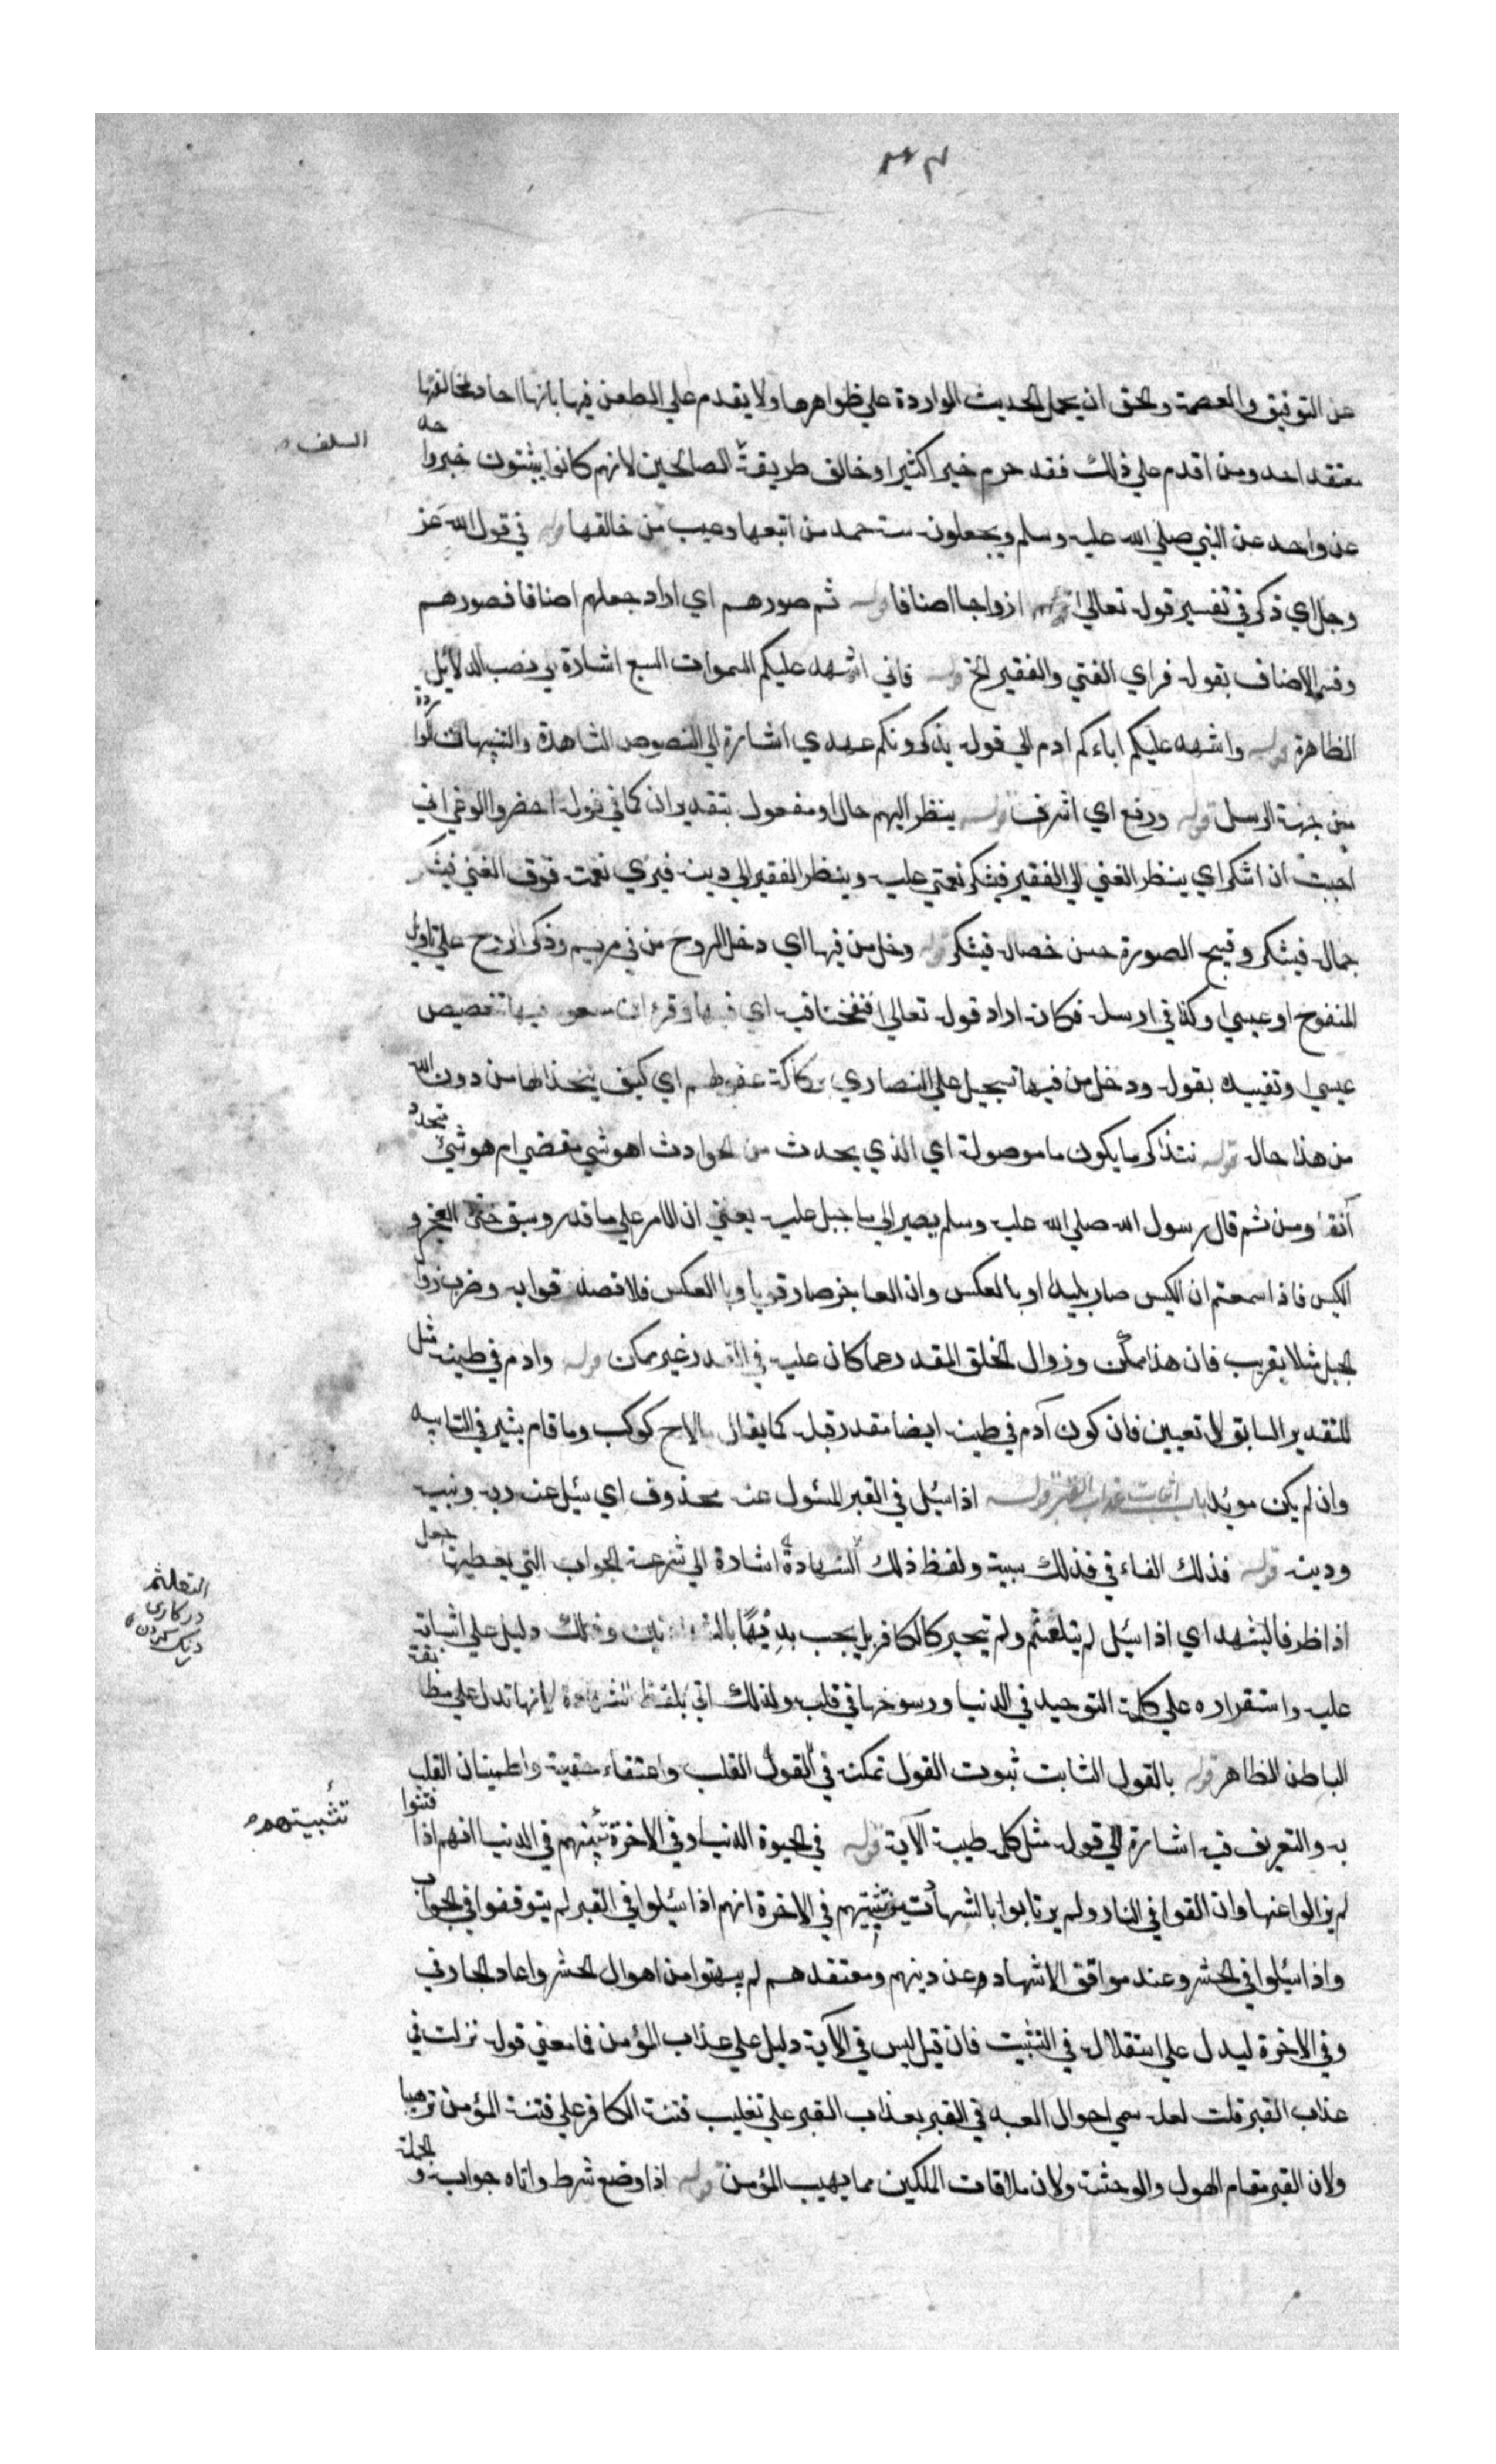 عن التوفيق والعصمة والحق ان يحمل الحديث الواردة علي ظواهرها ولا يقدم علي الطعن فيها بانها احاد لمخالفتها
معتقد احد ومن اقدم علي ذلك فقد حرم خيرا كثيرا وخالف طريقة الصالحين لانهم كانوا يثبتون خبروا حد
السلف
عن واحد عن النبي صلي الله عليه وسلم ويجعلونه سنة حمد من اتبعها وعيب من خالفها قوله في قول الله عز
وجل اي ذكر في تفسير قوله تعالي قوله ازواجا اصنافا قوله ثم صورهم اي اراد جعلهم اصنافا فصورهم
وفسر الاصناف بقوله فراي الغني والفقير الخ قوله فاني اشهد عليكم السموات السبع اشارة الي نصب الدلائل
الظاهرة قوله واشهد عليكم اباءكم ادم الي قوله يذكرونكم عهدي اشارة الي النصوص الشاهدة والتنبيهات الواردة
من جهة الرسل قوله ورفع اي اشرف قوله ينظر اليهم حال او مفعول بتقدير ان كما في قوله احضر الوغي اني
احببت ان اشكر اي ينظر الغني الي الفقير فيشكر نعمتي عليه وينظر الفقير الي دينه فيري نعمته فوق الغني فيشكر
جماله فيشكر وقبيح الصورة حسن خصاله فيشكر قوله دخل من فيها اي دخل الروح من في مريم وذكر الروح علي تاويل
المنفوخ او عيسي وكذا في ارسله فكانه اراد قوله تعالي فنفخنا فيه اي فيها وقرأ ابن مسعود فيها تخصيص
عيسي وتقييده بقوله ودخل من فيها تسجيل علي النصاري بركاكة عقولهم اي كيف يتخذ الها من دون الله
من هذا حاله قوله نتذاكر ما يكون ما موصولة اي الذي يحدث من الحوادث اهو شي مقضي ام هو شيئ يتجدد
آنفا ومن ثم قال رسول الله صلي الله عليه وسلم يصير الي ما جبل عليه يعني ان الامر علي ما قدر وسبق حتي العجز و
الكيس فاذا سمعتم ان الكيس صار بليدا او بالعكس وان العاجز صار قويا وبالعكس فلا تصدقوا به وضرب زوال
الجبل مثلا تقريب فان هذا ممكن وزوال الخلق المقدر عما كان عليه في القدر غير ممكن قوله وادم في طينه مثل
للتقدير السابق لا تعيين فان كون آدم في طينه ايضا مقدر قبله كما يقال ما لاح كوكب وما قام بثير في التابيد
وان لم يكن مويد باب اثبات عذاب القبر قوله اذا سئل في القبر المسئول عنه محذوف اي سئل عن ربه ونبيه
ودينه قوله فذلك الفاء في فذلك سببية ولفظ ذلك اشارة الي سرعة الجواب التي يعطيها جعل
التعلثم
دركاري
درنك كردن
اذا ظرفا ليشهد اي اذا سئل لم يتلعثم ولم يتحير كالكافر بل يجيب بديهًا وذلك دليل علي ثباته
عليه واستقراره علي كلمة التوحيد في الدنيا ورسوخها في قلبه ولذلك اتي بلفظ الشهادة لانها تدل علي مطابقة
الباطن الظاهر قوله بالقول الثابت ثبوت القول تمكنه في القلب واعتقاد حقيته واطمينان القلب
تثبيتهم
به والتعريف فيه اشارة الي قوله مثل كلمة طيبة الآية قوله في الحيوة الدنيا وفي الاخرة تثبيتهم في الدنيا انهم اذا فتنوا
لم يزالوا عنها وان القوا في النار ولم يرتابوا بالشبهات وتثبيتهم في الاخرة انهم اذا سئلوا في القبر لم يتوقفوا في الجواب
واذا سئلوا في الحشر وعند مواقف الاشهاد عن دينهم ومعتقدهم لم يبهتوا من اهوال الحشر واعاد الجار في
وفي الاخرة ليدل علي استقلاله في التثبيت فان قيل ليس في الآية دليل علي عذاب المؤمن فما معني قوله نزلت في
عذاب القبر قلت لعله سمي احوال العبد في القبر بعذاب القبر علي تغليب فتنة الكافر علي فتنة المؤمن ترهيبا
ولان القبر مقام الهول والوحشة ولان ملاقات الملكين مما يهيب المؤمن قوله اذا وضع شرط واتاه جوابه و الجملة